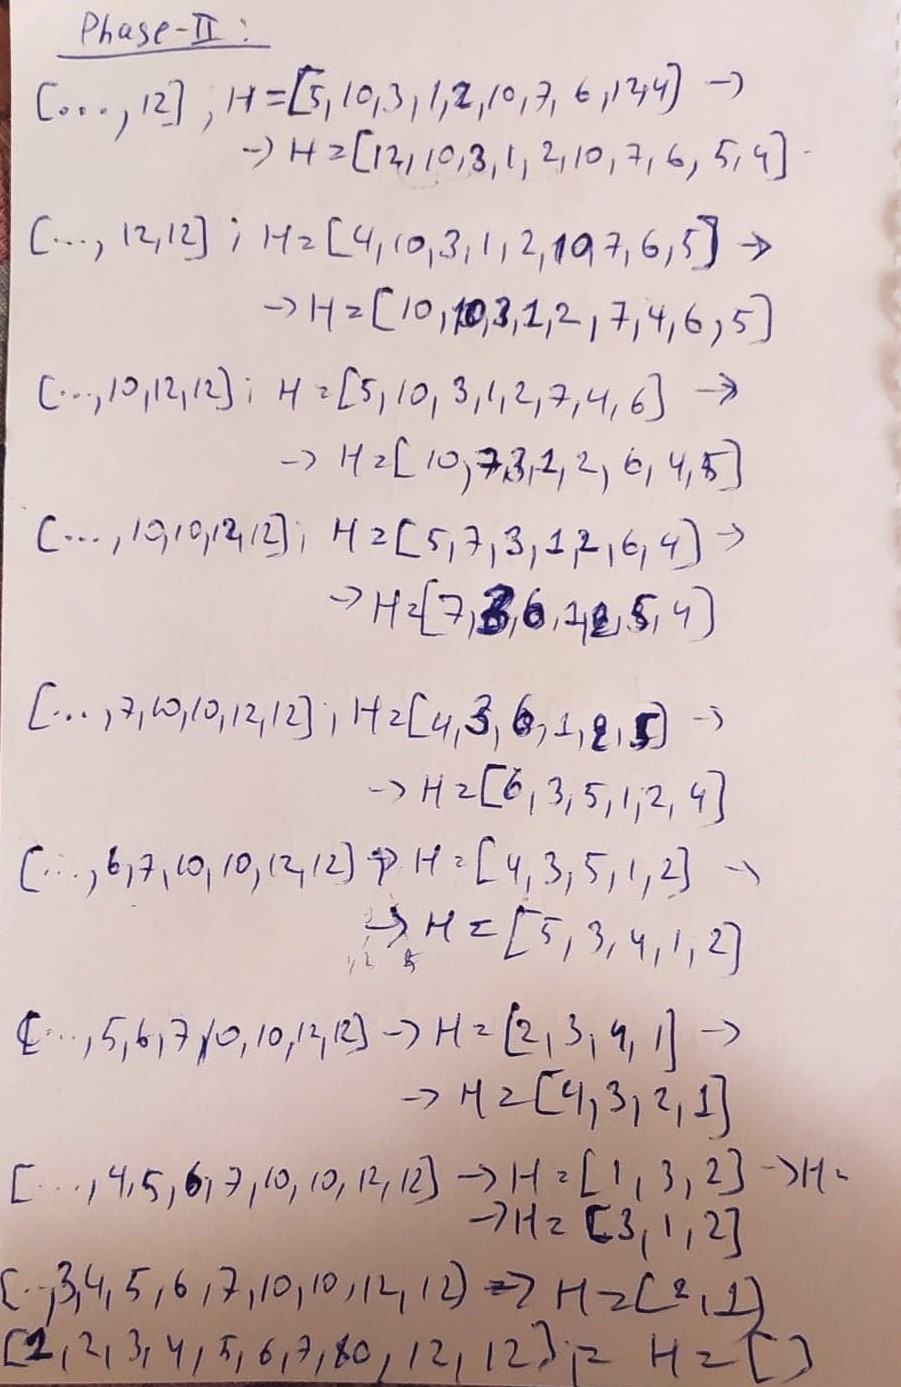 Phase-II:
[..., 12], H=[5,10,3,1,2,10,7,6,12,4] →
→ H=[12,10,3,1,2,10,7,6,5,4]
[..., 12,12]; H=[4,10,3,1,2,10,7,6,5] →
→ H=[10,10,3,1,2,7,4,6,5]
[...,10,12,12]; H=[5,10,3,1,2,7,4,6] →
→ H=[10,7,3,1,2,6,4,5]
[...,10,10,12,12]; H=[5,7,3,1,2,6,4] →
→ H=[7,3,6,1,2,5,4]
[...,7,10,10,12,12]; H=[4,3,6,1,2,5] →
→ H=[6,3,5,1,2,4]
[...,6,7,10,10,12,12] → H=[4,3,5,1,2] →
→ H=[5,3,4,1,2]
[...,5,6,7,10,10,12,12] → H=[2,3,4,1] →
→ H=[4,3,2,1]
[...,4,5,6,7,10,10,12,12] → H=[1,3,2] → H=
→ H=[3,1,2]
[...,3,4,5,6,7,10,10,12,12] => H=[2,1]
[1,2,3,4,5,6,7,10,12,12]; = H=[]